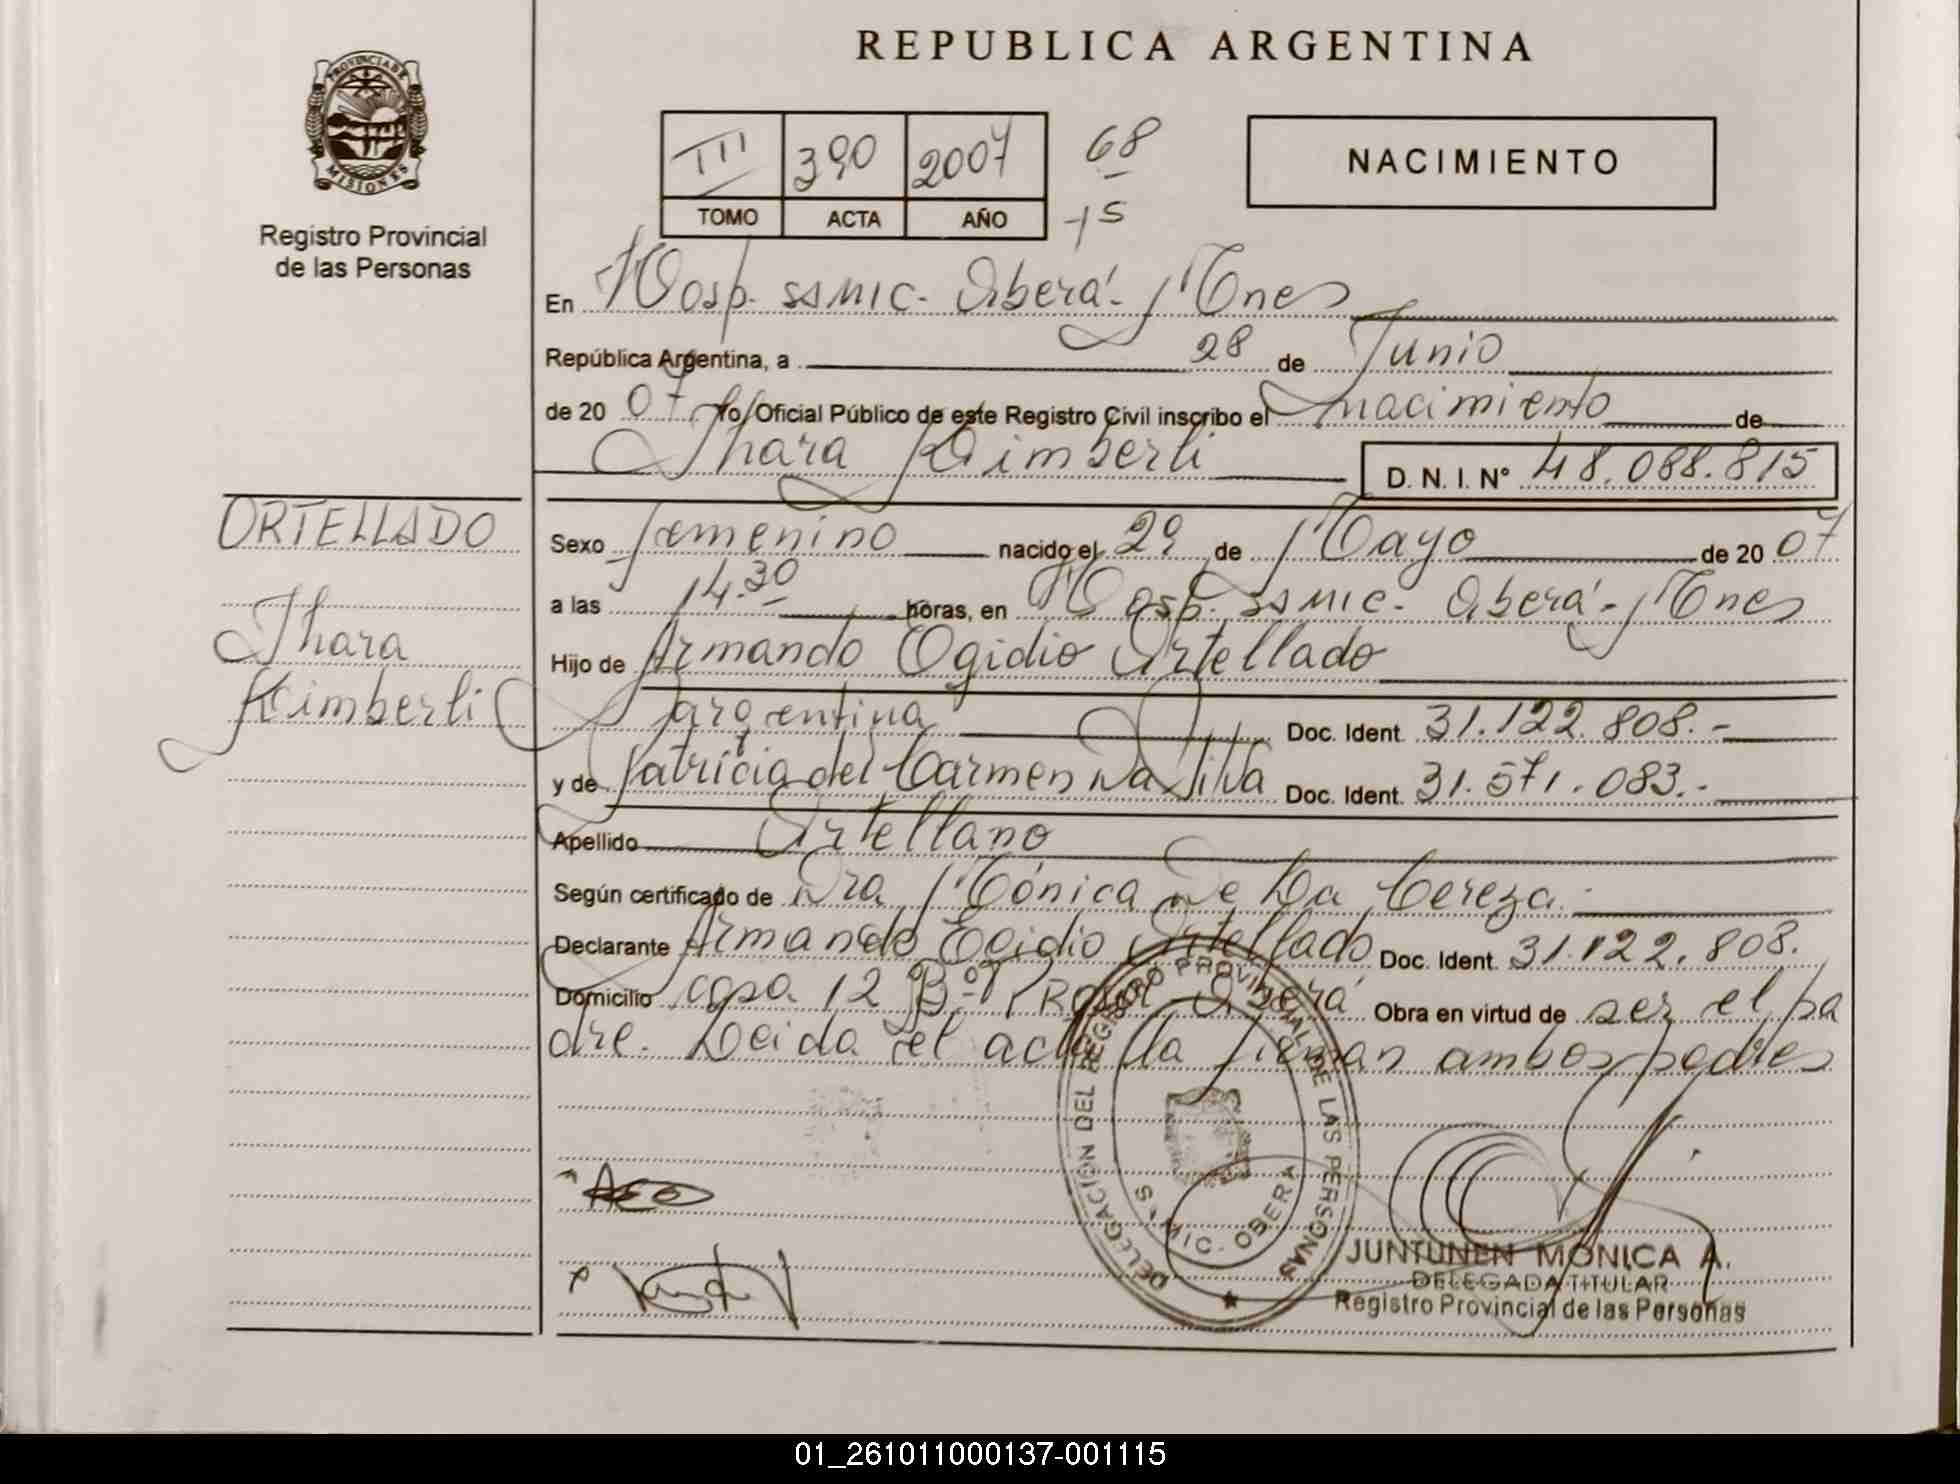 REPUBLICA ARGENTINA
PROVINCIA DE MISIONES
Registro Provincial
de las Personas
III 390 2007 68
TOMO ACTA AÑO 15
NACIMIENTO
En Hosp. SSMIC. Oberá - Mnes
República Argentina, a 28 de Junio
de 20 07 Yo, Oficial Público de este Registro Civil inscribo el nacimiento de
Jhara Kimberli D. N. I. N° 48.088.815
ORTELLADO
Jhara
Kimberli
Sexo femenino nacido el 29 de Mayo de 20 07
a las 14.30 horas, en Hosp. SSMIC. Oberá - Mnes
Hijo de Armando Egidio Ortellado
argentina Doc. Ident. 31.122.808.-
y de Patricia del Carmen Da Silva Doc. Ident. 31.571.083.-
Apellido Ortellano
Según certificado de Dra Mónica De La Cereza.
Declarante Armando Egidio Ortellado Doc. Ident. 31.122.808.
Domicilio casa 12 B° Oberá Obra en virtud de ser el pa
dre. Leida el acta la firman ambos padres
DELEGACIÓN DEL REGISTRO PROVINCIAL DE LAS PERSONAS
OBERA
JUNTUNEN MONICA A.
DELEGADA TITULAR
Registro Provincial de las Personas
01_261011000137-001115